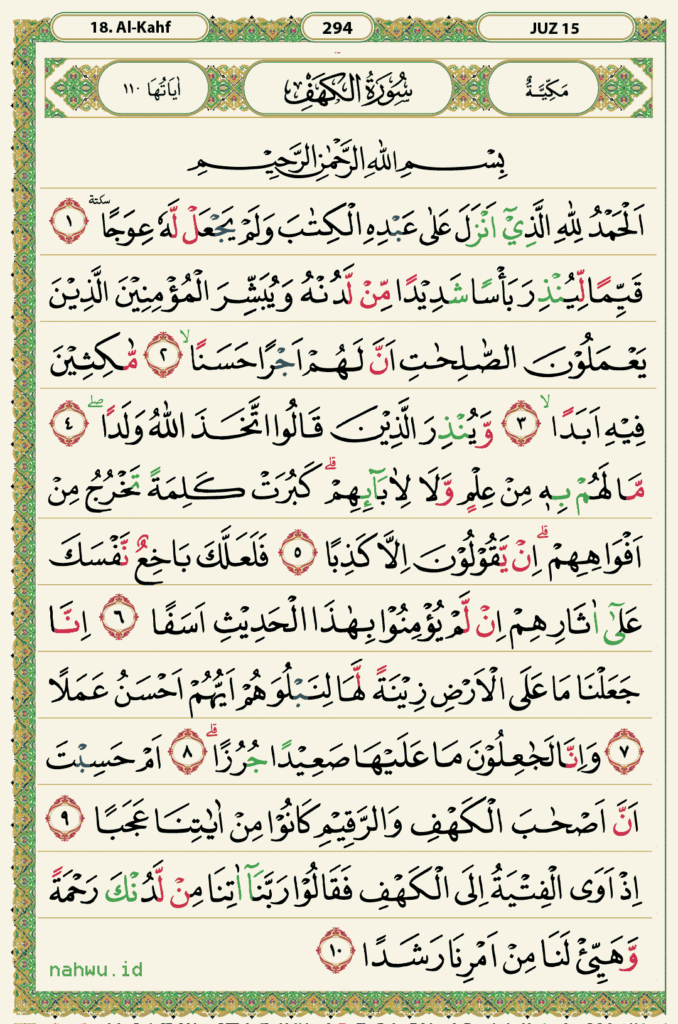 18. Al-Kahf
294
JUZ 15
اٰيَاتُهَا ١١٠
سُوْرَةُ الْكَهْفِ
مَكِّيَّةٌ
بِسْمِ اللّٰهِ الرَّحْمٰنِ الرَّحِيْمِ
اَلْحَمْدُ لِلّٰهِ الَّذِيْٓ اَنْزَلَ عَلٰى عَبْدِهِ الْكِتٰبَ وَلَمْ يَجْعَلْ لَّهٗ عِوَجًا ۜ ١
قَيِّمًا لِّيُنْذِرَ بَأْسًا شَدِيْدًا مِّنْ لَّدُنْهُ وَيُبَشِّرَ الْمُؤْمِنِيْنَ الَّذِيْنَ
يَعْمَلُوْنَ الصّٰلِحٰتِ اَنَّ لَهُمْ اَجْرًا حَسَنًاۙ ٢ مّٰكِثِيْنَ
فِيْهِ اَبَدًاۙ ٣ وَّيُنْذِرَ الَّذِيْنَ قَالُوا اتَّخَذَ اللّٰهُ وَلَدًاۖ ٤
مَّا لَهُمْ بِهٖ مِنْ عِلْمٍ وَّلَا لِاٰبَاۤىِٕهِمْۗ كَبُرَتْ كَلِمَةً تَخْرُجُ مِنْ
اَفْوَاهِهِمْۗ اِنْ يَّقُوْلُوْنَ اِلَّا كَذِبًا ٥ فَلَعَلَّكَ بَاخِعٌ نَّفْسَكَ
عَلٰٓى اٰثَارِهِمْ اِنْ لَّمْ يُؤْمِنُوْا بِهٰذَا الْحَدِيْثِ اَسَفًا ٦ اِنَّا
جَعَلْنَا مَا عَلَى الْاَرْضِ زِيْنَةً لَّهَا لِنَبْلُوَهُمْ اَيُّهُمْ اَحْسَنُ عَمَلًا
٧ وَاِنَّا لَجٰعِلُوْنَ مَا عَلَيْهَا صَعِيْدًا جُرُزًاۗ ٨ اَمْ حَسِبْتَ
اَنَّ اَصْحٰبَ الْكَهْفِ وَالرَّقِيْمِ كَانُوْا مِنْ اٰيٰتِنَا عَجَبًا ٩
اِذْ اَوَى الْفِتْيَةُ اِلَى الْكَهْفِ فَقَالُوْا رَبَّنَآ اٰتِنَا مِنْ لَّدُنْكَ رَحْمَةً
وَّهَيِّئْ لَنَا مِنْ اَمْرِنَا رَشَدًا ١٠
nahwu.id